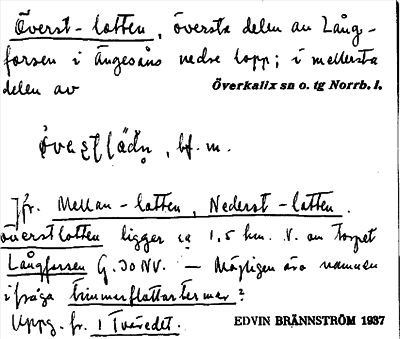 Överst-latten, översta delen av Lång-
forsen i Ängesåns nedre lopp; i mellersta
delen av Överkalix sn o. tg Norrb. l.
, bf. m.
Jfr. Mellan-latten, Nederst-latten.
Överstlatten ligger ca 1,5 km. V. om torpet
Långforsen G. 30 NV. — Möjligen äro namnen
ifråga timmerflottartermer?
Uppg. fr. 1 Tväredet.
EDVIN BRÄNNSTRÖM 1937